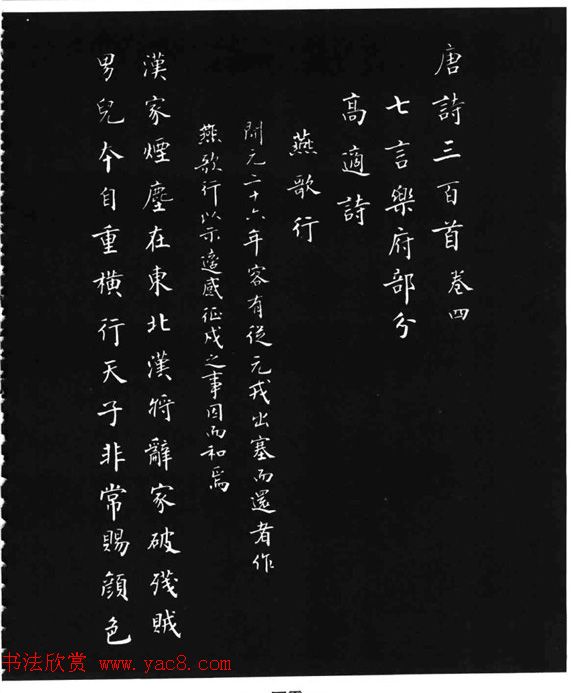 唐詩三百首 卷四
七言樂府部分
高適詩
燕歌行
開元二十六年客有從元戎出塞而還者作
燕歌行以示適感征戍之事因而和焉
漢家煙塵在東北漢將辭家破殘賊
男兒本自重橫行天子非常賜顏色
书法欣赏 www.yac8.com